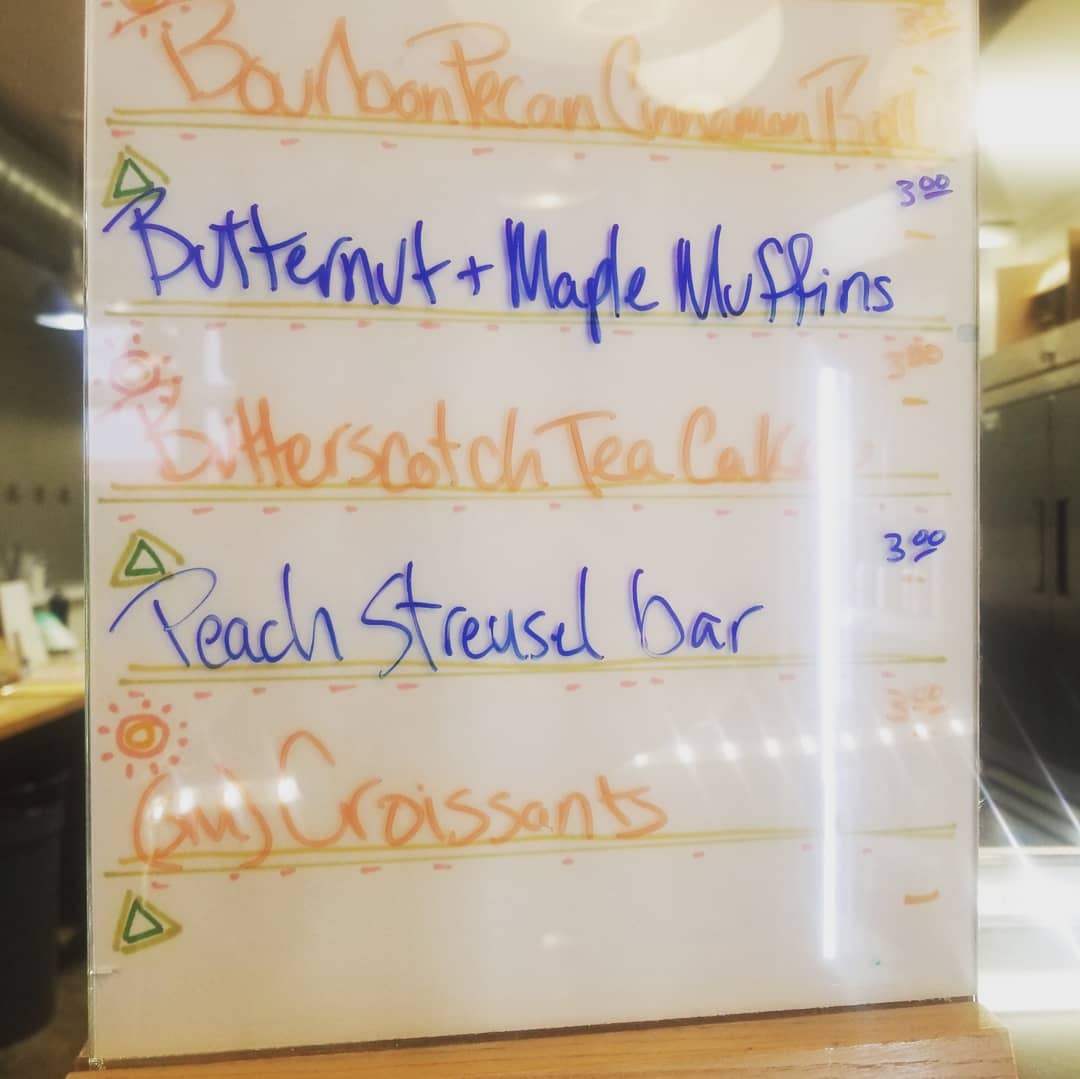 Bourbon Pecan Cinnamon Roll
3.00
Butternut + Maple Muffins
3.00
Butterscotch Tea Cakes
3.00
Peach Streusel bar
Croissants